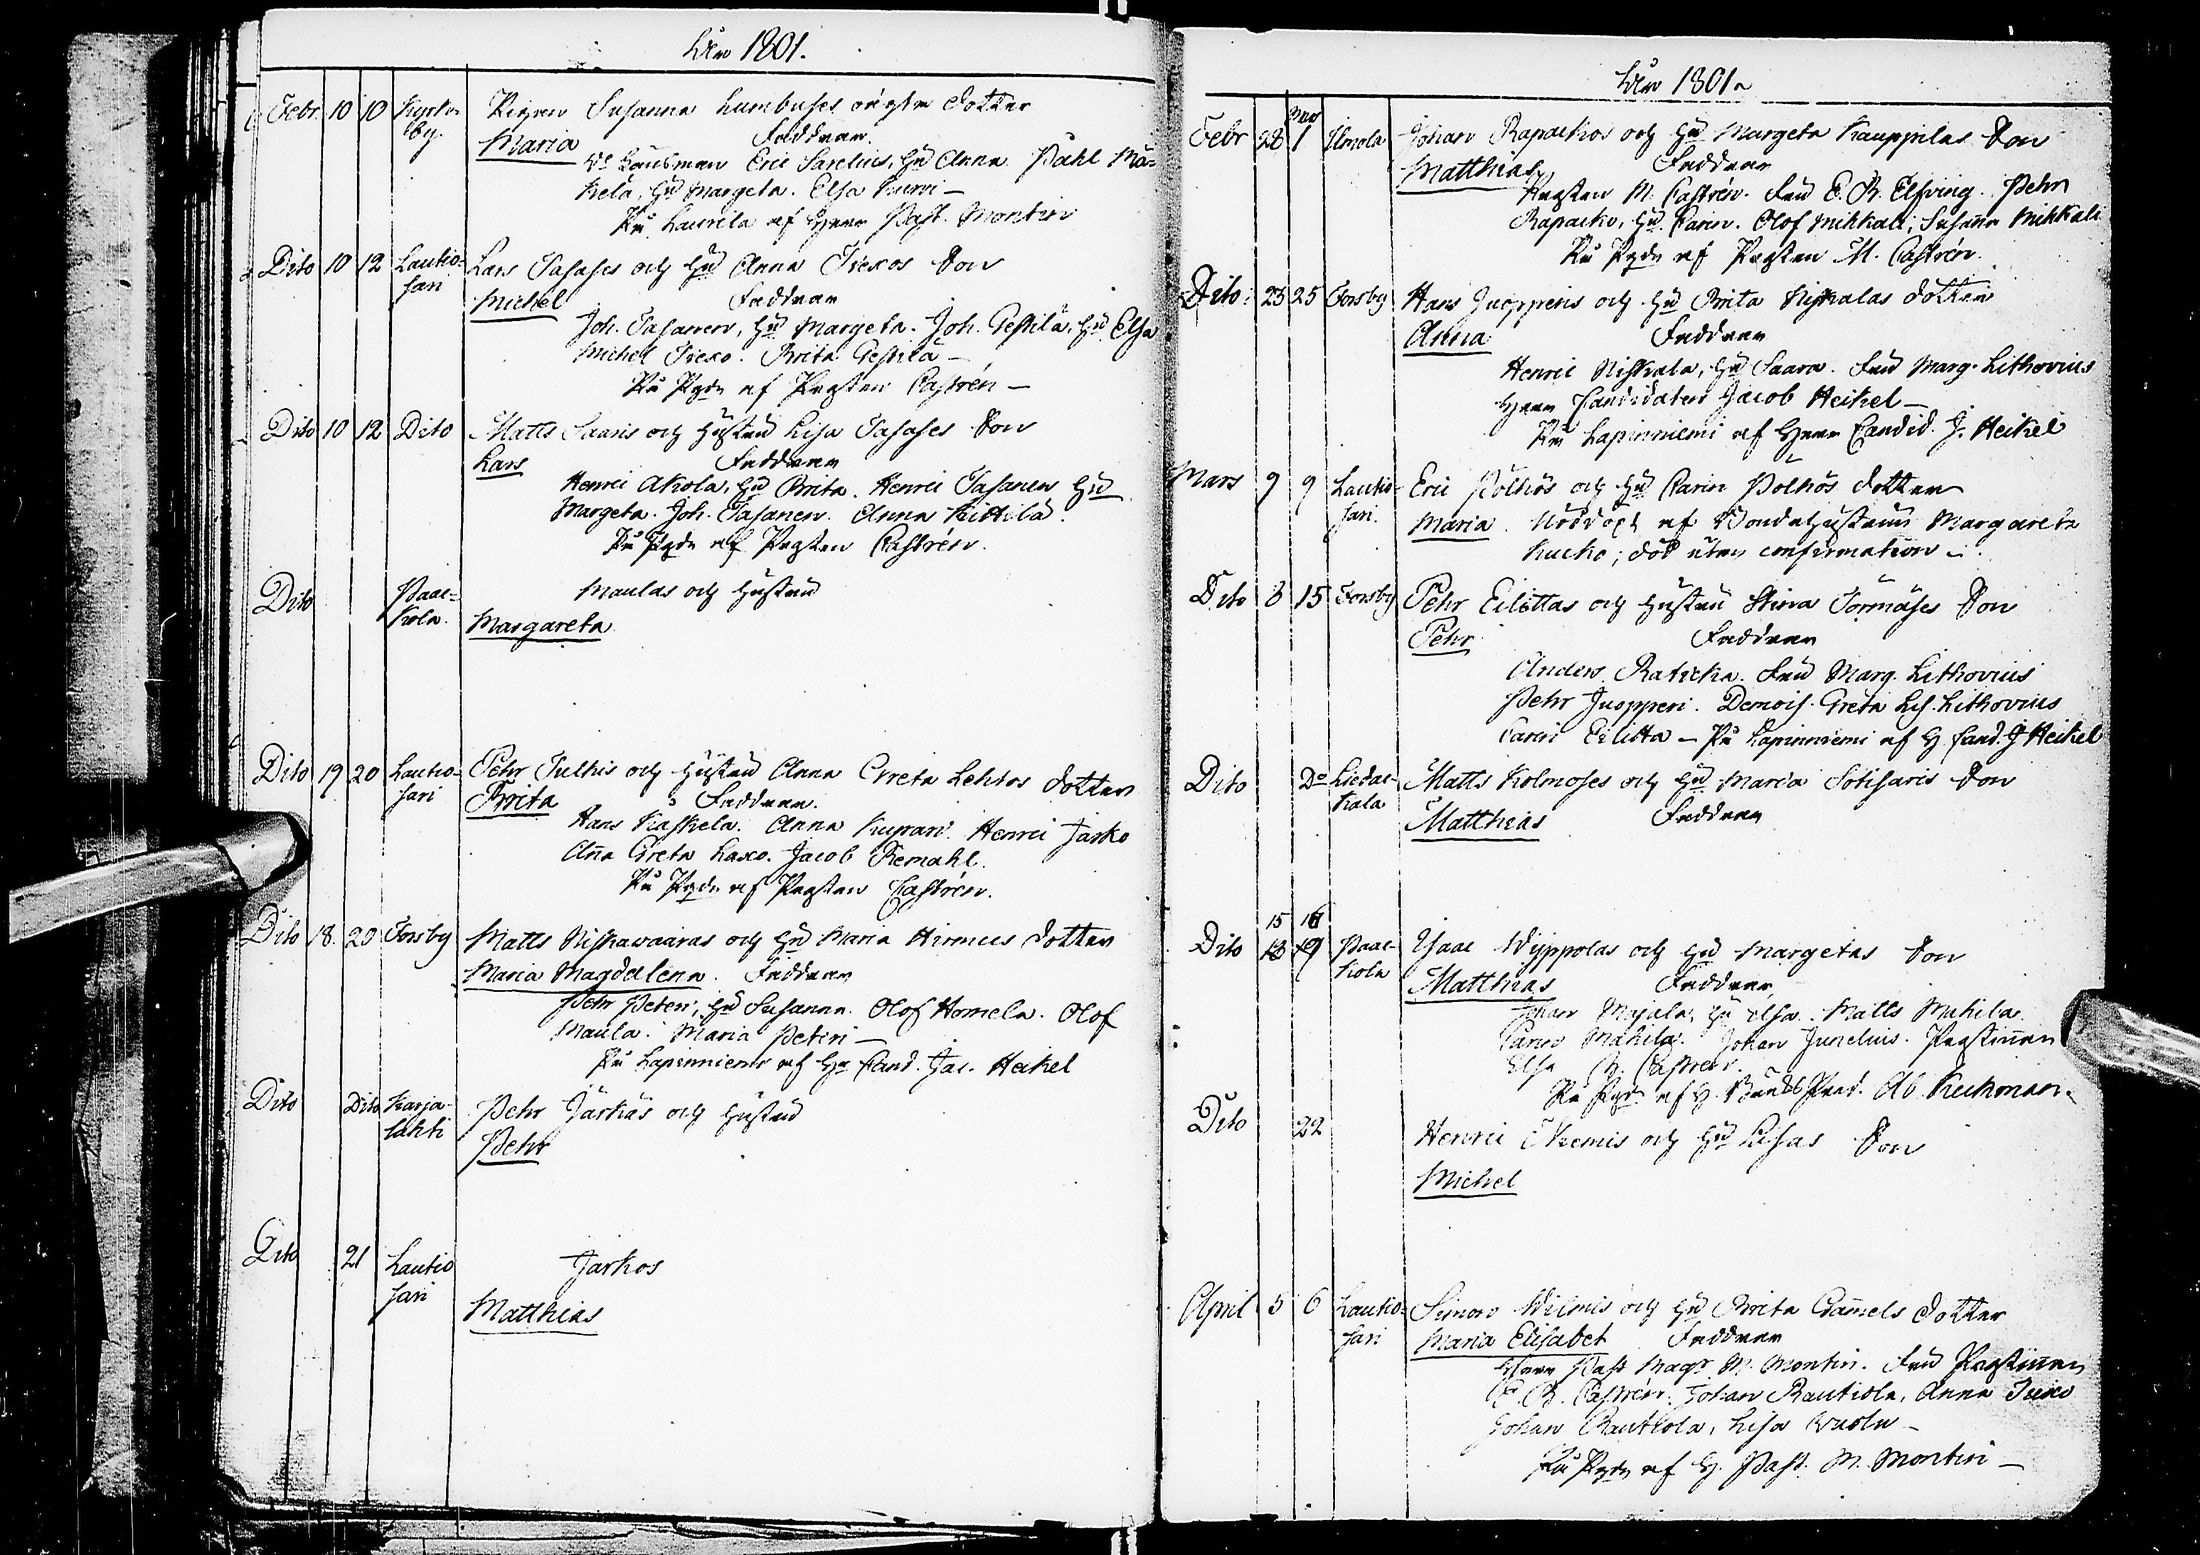 Åhr 1801.
Febr. 10 10 Kyrko-
by. Pigan Susanna Lumbuses oägta dotter
Maria Faddrar
Vc Länsman Eric Sarelius, Hu Anna. Påhl Mä-
kelä, Hu Margeta. Elsa Kurvi –
På Laurila af Herr Past. Montin
Dito 10 12 Lautio-
sari Lars Tasases och Hu Anna Trexos Son
Michel Faddrar
Joh. Tasanen, Hu Margeta. Joh. Peskilä, Hu Elsa
Michel Trexo. Brita Peskilä –
På Pgdn af Prosten Castrén –
Dito 10 12 Dito Matts Saaris och Hustru Lisa Tasases Son
Lars Faddrar
Henric Akola, Hu Brita. Henric Tasanen Hu
Margeta. Joh. Tasanen. Anna Kittilä.
På Pgdn af Prosten Castrén.
Dito Paac-
kola Maulas och Hustru
Margareta
Dito 19 20 Lautio-
sari Pehr Tulkis och Hustru Anna Greta Lehtos dotter
Brita Faddrar.
Hans Kaskela. Anna Kuprari. Henric Jarko
Aña Greta Laxo. Jacob Kemahl.
På Pgdn af Prosten Castrén.
Dito 18. 20 Forsby Matts Niskawaaras och Hu Maria Hirmus dotter
Maria Magdalena. Faddrar
Pehr Peteri, Hu Susanna. Olof Homela. Olof
Maula. Maria Peteri –
På Lapinniemi af Hr Cand. Jac. Heikel
Dito Dito Karja-
lahti Pehr Jarkäs och Hustru
Pehr
Dito 21 Lautio
sari Jarkos
Matthias
Åhr 1801
Febr 28 Mars 1 Ilmola Johan Rapackos och Hu Margeta Kauppilas Son
Matthias Faddrar
Prosten M. Castrén. Fru E. B. Elfving. Pehr
Rapacko, Hu Carin. Olof Mihkali, Susanna Mihkali
På Pgdn af Prosten M. Castrén.
Dito 25 25 Forsby Hans Juopperis och Hu Brita Niskalas dotter
Anna Faddrar
Henric Niskala, Hu Saara. Fru Marg. Lithovius
Herr Candidaten Jacob Heikel –
På Lapinniemi af Herr Candid. J. Heikel
Mars 9 9 Lautio-
sari. Eric Pölhös och Hu Carin Pölhös dotter
Maria. Nöddöpt af Bondehustrun Margareta
Kucko; död utan confirmation –
Dito 8 15 Forsby Pehr Eilittas och Hustru Stina Tormäses Son
Pehr Faddrar
Anders Raticka. Fru Marg. Lithovius
Pehr Juopperi. Demois. Greta Lis. Lithovius
Carin Eilitta – På Lapinniemi af H. Cand. J Heikel
Dito Do Liedac-
kala Matts Kolmoses och Hu Maria Sotisaris Son
Matthias Faddrar
15 16
Dito 18 19 Paac-
kola Isaac Wyppolas och Hu Margetas Son
Matthias Faddrar
Johan Majala, Hu Elsa. Matts Mahila.
Carin Mahila. Johan Junelius. Prostiñan
Elsa B. Castrén.
På Pgdn af H. Ab. Heickman.
Dito 22 Henric Niemis och Hu Lisas Son
Michel
April 5 6 Lautio-
sari Simon Wilmis och Hu Brita Gamels dotter
Maria Elisabet Faddrar
Herr Past. Magr M. Montin. Fru Prostiñan
E. B. Castrén. Johan Rautiola, Anna Juxo
Johan Rautiola, Lisa Vuolu –
På Pgdn af H. Past. M. Montin –